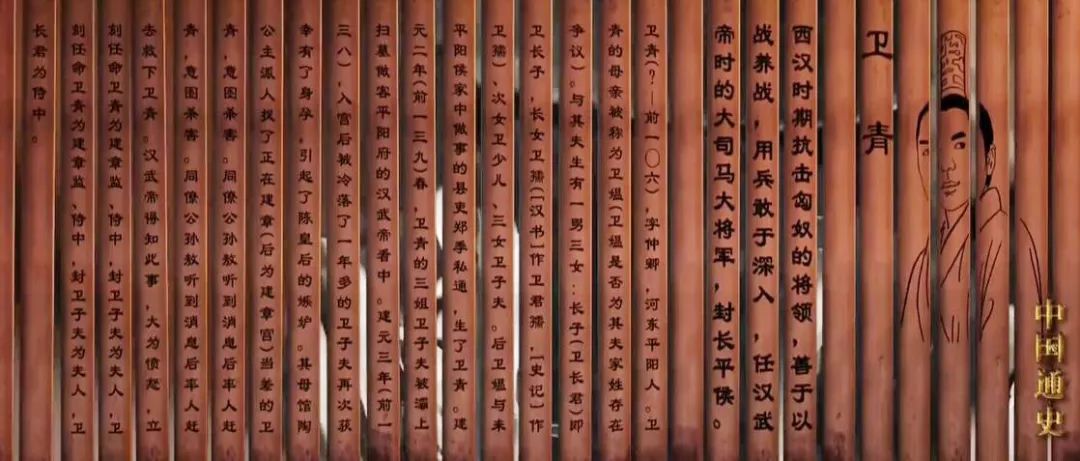 卫青
西汉时期抗击匈奴的将领，善于以
战养战，用兵敢于深入，任汉武
帝时的大司马大将军，封长平侯。
卫青(?—前一〇六)，字仲卿，河东平阳人。卫
青的母亲被称为卫媪(卫媪是否为其夫家姓存在
争议)。与其夫生有一男三女：长子(卫长君)即
卫长子，长女卫孺([汉书]作卫君孺，[史记]作
卫孺)、次女卫少儿、三女卫子夫。后卫媪与来
平阳侯家中做事的县吏郑季私通，生了卫青。建
元二年(前一三九)春，卫青的三姐卫子夫被灞上
扫墓做客平阳府的汉武帝看中。建元三年(前一
三八)，入宫后被冷落了一年多的卫子夫再次获
幸有了身孕，引起了陈皇后的嫉妒。其母馆陶
公主派人找了正在建章(后为建章宫)当差的卫
青，意图杀害。同僚公孙敖听到消息后率人赶
青，意图杀害。同僚公孙敖听到消息后率人赶
去救下卫青。汉武帝得知此事，大为愤怒，立
刻任命卫青为建章监、侍中，封卫子夫为夫人，卫
刻任命卫青为建章监、侍中，封卫子夫为夫人，卫
长君为侍中。
中国通史